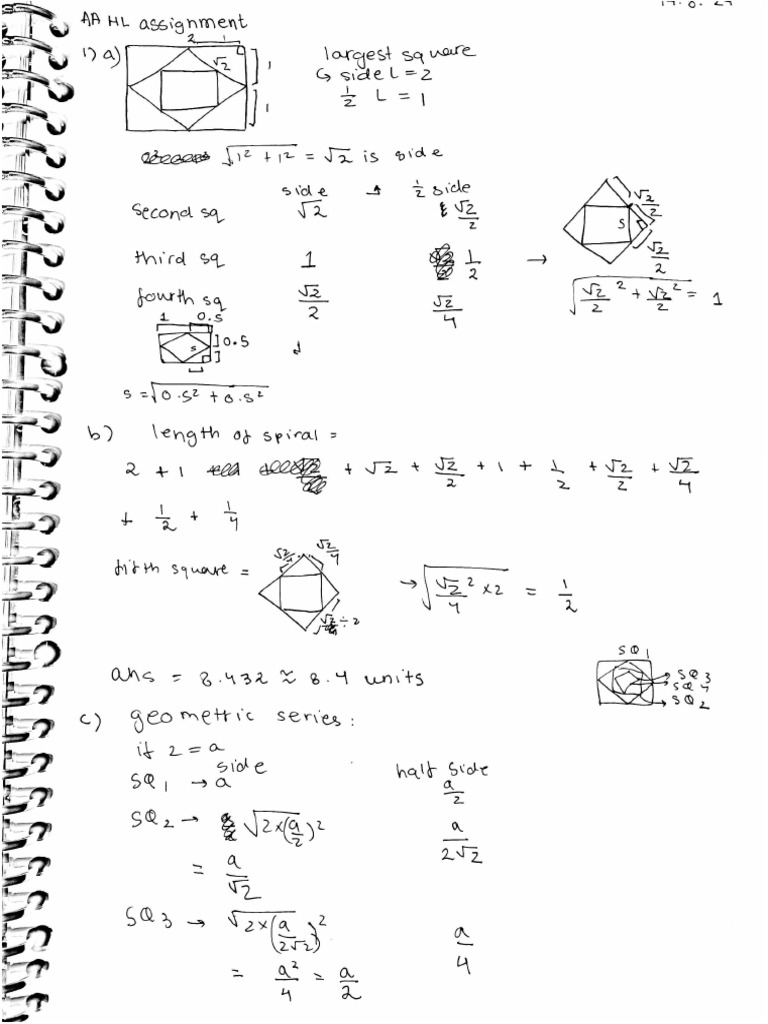 AA HL assignment
1) a)
2 1
√2
1
1
largest square
↳ side L = 2
1/2 L = 1
√(1² + 1²) = √2 is side
side → 1/2 side
second sq √2 √2/2
third sq 1 1/2 →
fourth sq √2/2 √2/4
√2/2
S
√2/2
√(√2/2 ² + √2/2 ²) = 1
1 0.5
0.5
s
s = √(0.5² + 0.5²)
b) length of spiral =
2 + 1 + √2 + √2/2 + 1 + 1/2 + √2/2 + √2/4
+ 1/2 + 1/4
fifth square =
√2/4 √2/4
÷ 2
→ √(√2/4 ² × 2) = 1/2
ans = 8.432 ≈ 8.4 units
SQ1
SQ3
SQ4
SQ2
c) geometric series:
if 2 = a
side half side
SQ1 → a a/2
SQ2 → √(2×(a/2)²) a/(2√2)
= a/√2
SQ3 → √(2×(a/(2√2))²) a/4
= a²/4 = a/2